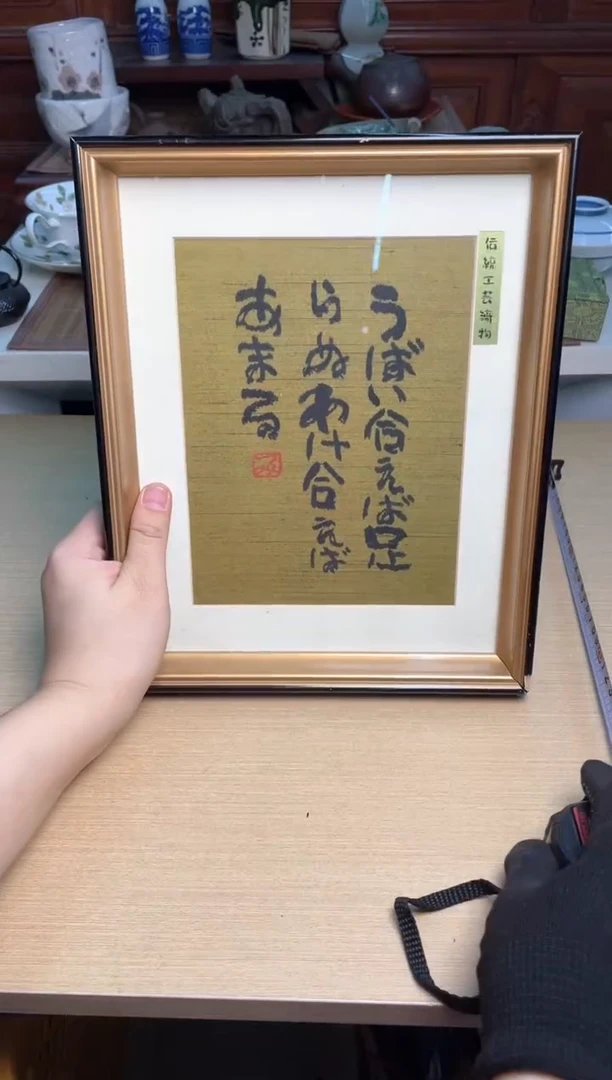 伝統工芸織物
うばい合えば足
らぬわけ合えば
あまる